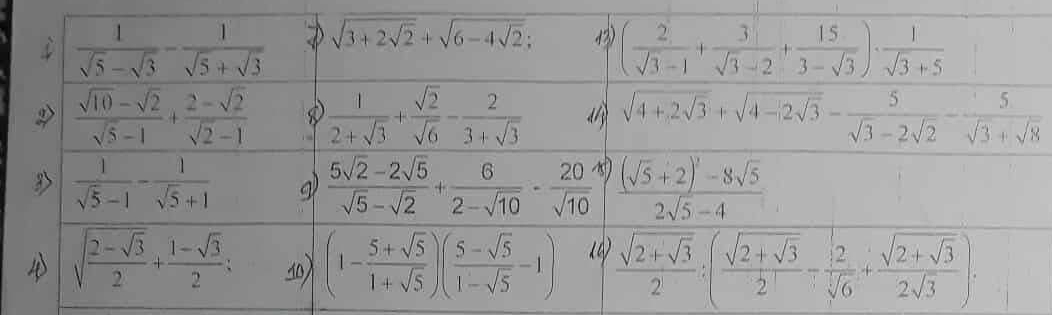 1) \frac{1}{\sqrt{5}-\sqrt{3}} - \frac{1}{\sqrt{5}+\sqrt{3}}
7) \sqrt{3+2\sqrt{2}} + \sqrt{6-4\sqrt{2}};
13) \left(\frac{2}{\sqrt{3}-1} + \frac{3}{\sqrt{3}-2} + \frac{15}{3-\sqrt{3}}\right) \cdot \frac{1}{\sqrt{3}+5}
2) \frac{\sqrt{10}-\sqrt{2}}{\sqrt{5}-1} + \frac{2-\sqrt{2}}{\sqrt{2}-1}
8) \frac{1}{2+\sqrt{3}} + \frac{\sqrt{2}}{\sqrt{6}} - \frac{2}{3+\sqrt{3}}
14) \sqrt{4+2\sqrt{3}} + \sqrt{4-2\sqrt{3}} - \frac{5}{\sqrt{3}-2\sqrt{2}} - \frac{5}{\sqrt{3}+\sqrt{8}}
3) \frac{1}{\sqrt{5}-1} - \frac{1}{\sqrt{5}+1}
9) \frac{5\sqrt{2}-2\sqrt{5}}{\sqrt{5}-\sqrt{2}} + \frac{6}{2-\sqrt{10}} - \frac{20}{\sqrt{10}}
) \frac{(\sqrt{5}+2) - 8\sqrt{5}}{2\sqrt{5}-4}
4) \sqrt{\frac{2-\sqrt{3}}{2}} + \frac{1-\sqrt{3}}{2};
10) \left(1-\frac{5+\sqrt{5}}{1+\sqrt{5}}\right)\left(\frac{5-\sqrt{5}}{1-\sqrt{5}}-1\right)
16) \frac{\sqrt{2+\sqrt{3}}}{2} : \left(\frac{\sqrt{2+\sqrt{3}}}{2} - \frac{2}{\sqrt{6}} + \frac{\sqrt{2+\sqrt{3}}}{2\sqrt{3}}\right).